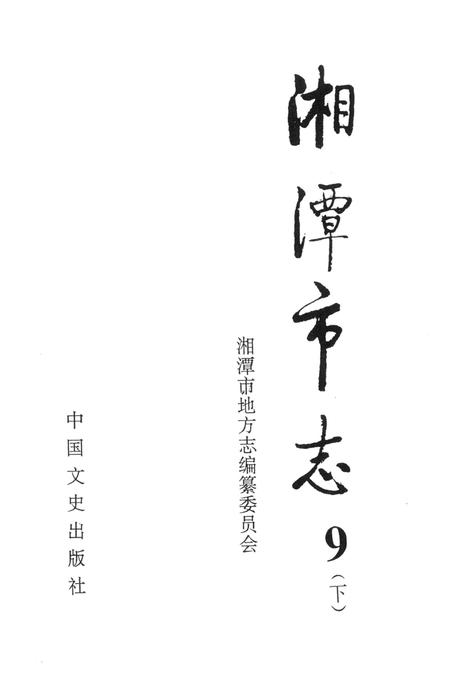 湘潭市志 9（下）
湘潭市地方志编纂委员会
中国文史出版社